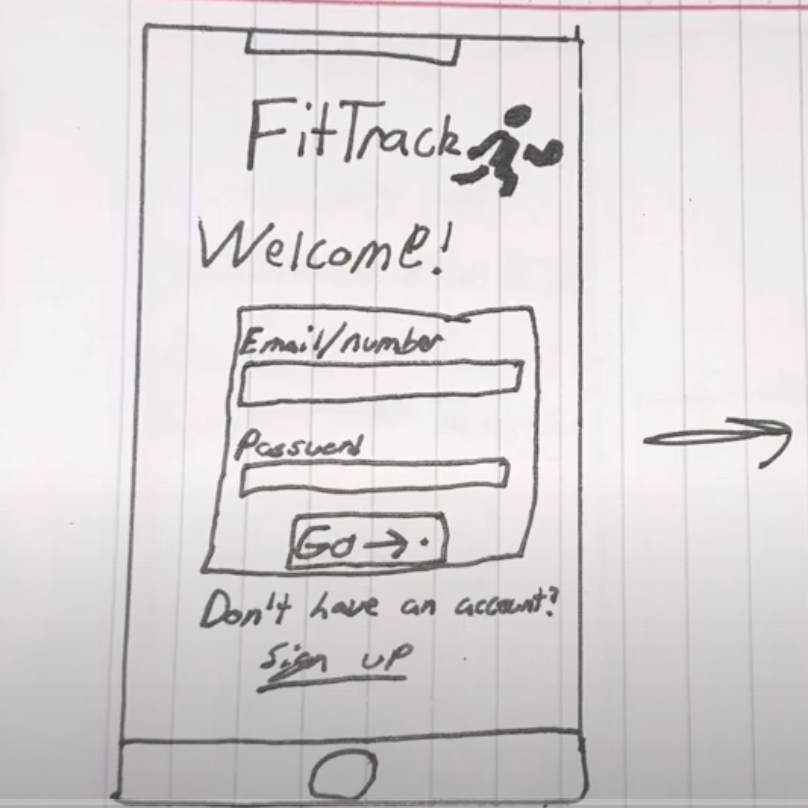 FitTrack
Welcome!
Email/number
Password
Go →
Don't have an account?
Sign up